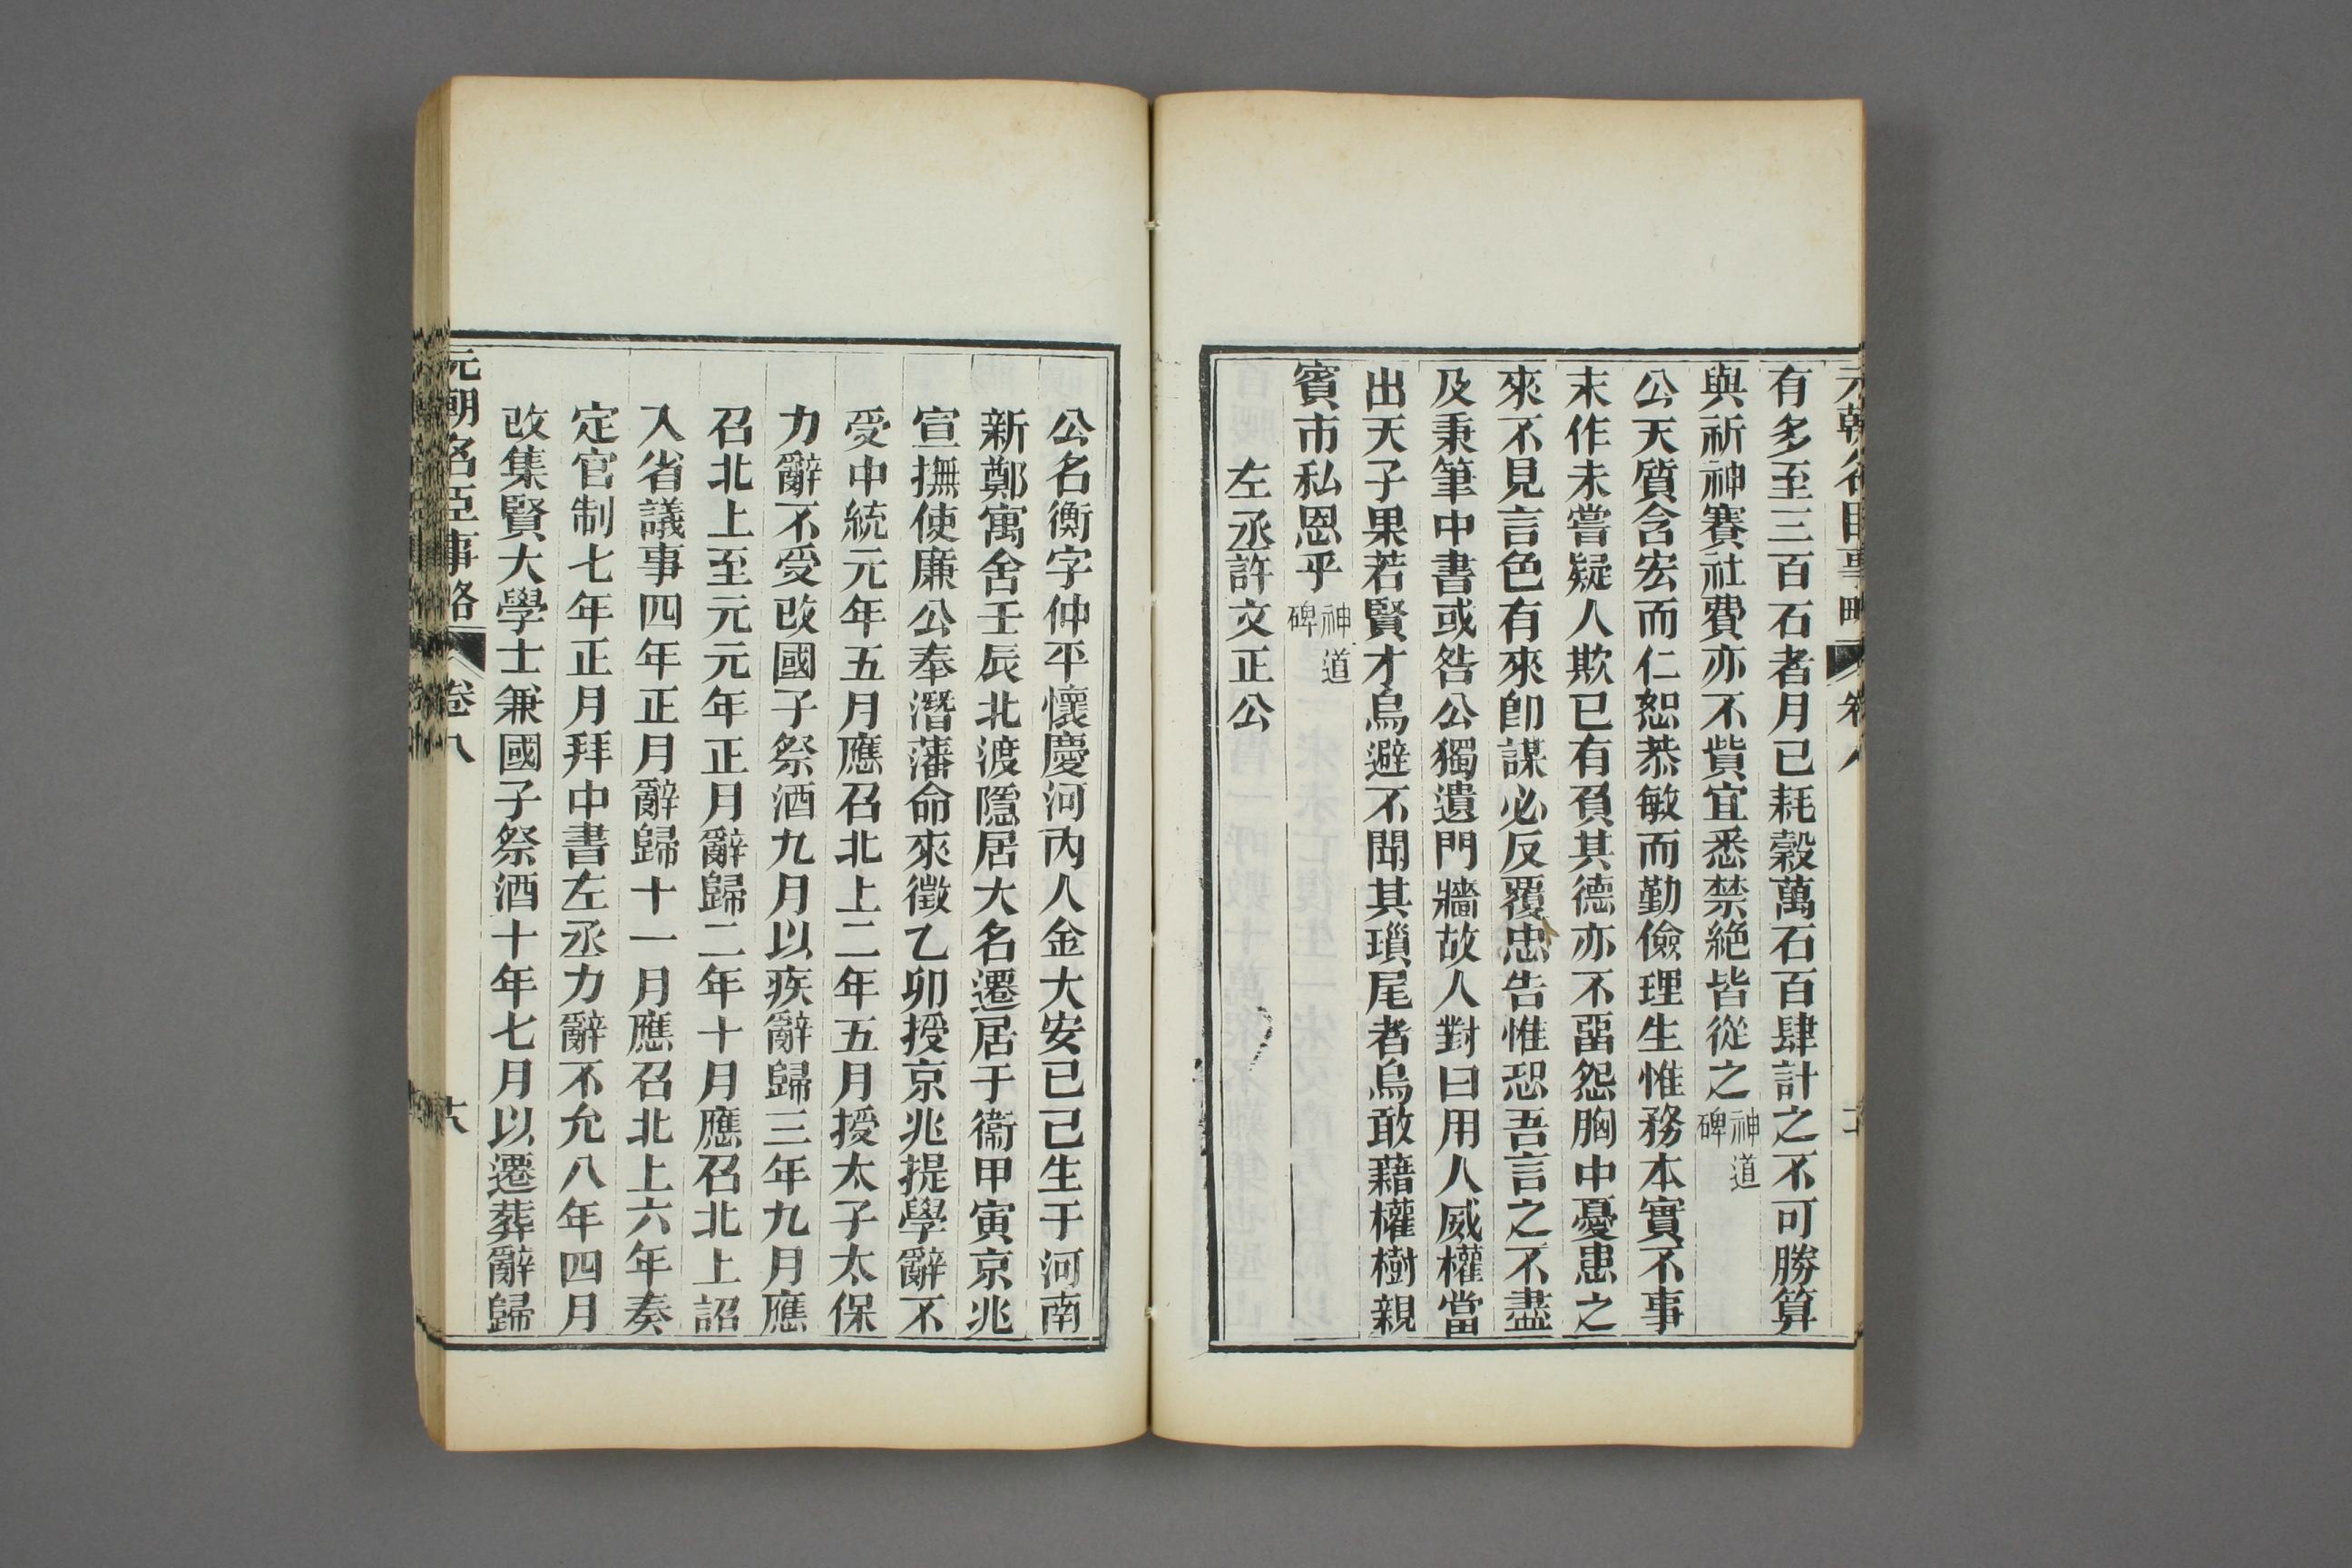 元朝名臣事略 卷八
有多至三百石者月已耗穀萬石百肆計之不可勝算
與祈神賽社費亦不貲宜悉禁絕皆從之神道碑
公天質含宏而仁恕恭敏而勤儉理生惟務本實不事
末作未嘗疑人欺已有負其德亦不畱怨胸中憂患之
來不見言色有來卽謀必反覆忠告惟恐吾言之不盡
及秉筆中書或咎公獨遺門牆故人對曰用人威權當
出天子果若賢才烏避不聞其瑣尾者烏敢藉權樹親
賓市私恩乎神道碑
左丞許文正公
公名衡字仲平懷慶河內人金大安己巳生于河南
新鄭寓舍壬辰北渡隱居大名遷居于衞甲寅京兆
宣撫使廉公奉潛藩命來徵乙卯授京兆提學辭不
受中統元年五月應召北上二年五月授太子太保
力辭不受改國子祭酒九月以疾辭歸三年九月應
召北上至元元年正月辭歸二年十月應召北上詔
入省議事四年正月辭歸十一月應召北上六年奏
定官制七年正月拜中書左丞力辭不允八年四月
改集賢大學士兼國子祭酒十年七月以遷葬辭歸
元朝名臣事略 卷八